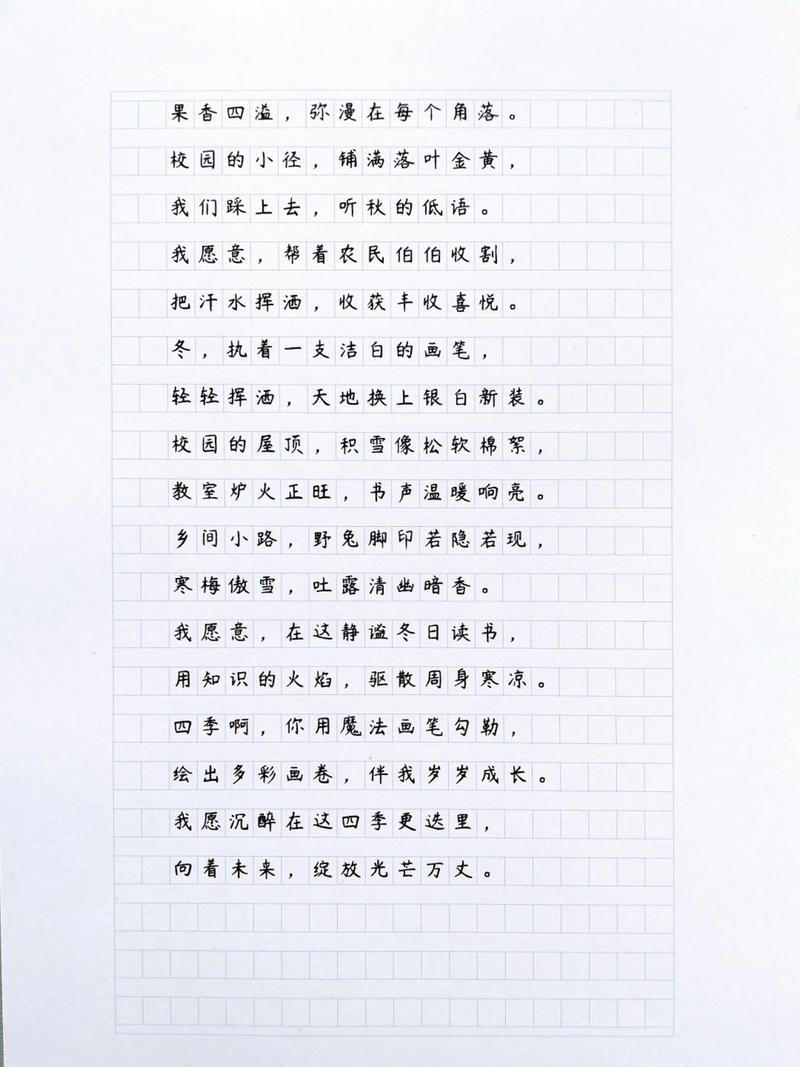 果香四溢，弥漫在每个角落。
校园的小径，铺满落叶金黄，
我们踩上去，听秋的低语。
我愿意，帮着农民伯伯收割，
把汗水挥洒，收获丰收喜悦。
冬，执着一支洁白的画笔，
轻轻挥洒，天地换上银白新装。
校园的屋顶，积雪像松软棉絮，
教室炉火正旺，书声温暖响亮。
乡间小路，野兔脚印若隐若现，
寒梅傲雪，吐露清幽暗香。
我愿意，在这静谧冬日读书，
用知识的火焰，驱散周身寒凉。
四季啊，你用魔法画笔勾勒，
绘出多彩画卷，伴我岁岁成长。
我愿沉醉在这四季更迭里，
向着未来，绽放光芒万丈。